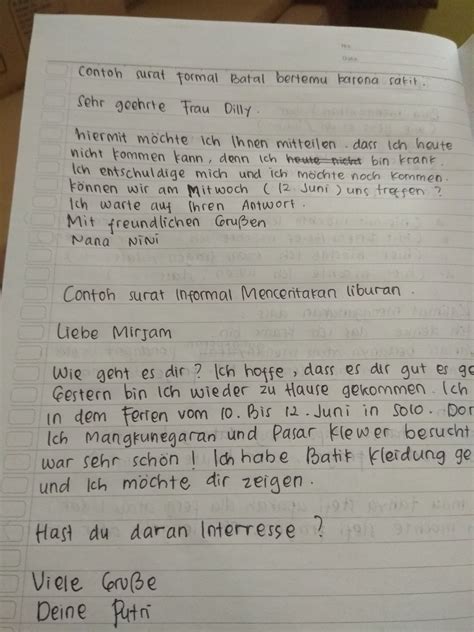 Contoh surat formal Batal bertemu karena sakit.
Sehr geehrte Frau Dilly.
hiermit möchte Ich Ihnen mitteilen. dass Ich heute
nicht kommen kann, denn Ich heute nicht bin krank.
Ich entschuldige mich und ich möchte noch kommen.
Können wir am Mitwoch (12. Juni) uns treffen?
Ich warte auf Ihren Antwort.
Mit freundlichen Grußen
Nana NiNi
Contoh surat Informal Menceritakan liburan.
Liebe Mirjam
Wie geht es dir? Ich hoffe, dass es dir gut es ge
Gestern bin Ich wieder zu Hause gekommen. Ich
in dem Ferien vom 10. Bis 12. Juni in Solo. Dor
Ich Mangkunegaran und Pasar Klewer besucht
war sehr schön! Ich habe Batik Kleidung ge
und Ich möchte dir zeigen.
Hast du daran Interresse?
Viele Gruße
Deine Putri